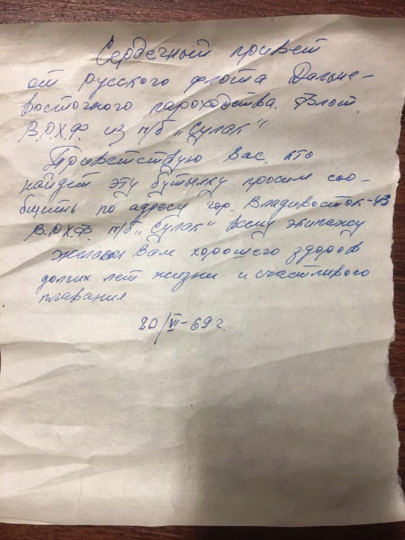 Сердечный привет
от русского флота Дальне-
восточного пароходства.
В.Р.Х.Ф. из п/б „Сулак"
Приветствую Вас. кто
найдет эту бутылку просим соо-
бщить по адресу гор. Владивосток-43
В.Р.Х.Ф п/б „Сулак" всему экипажу
желаем Вам хорошего здоров
долгих лет жизни и счастливого
плавания
20/VI-69 г.